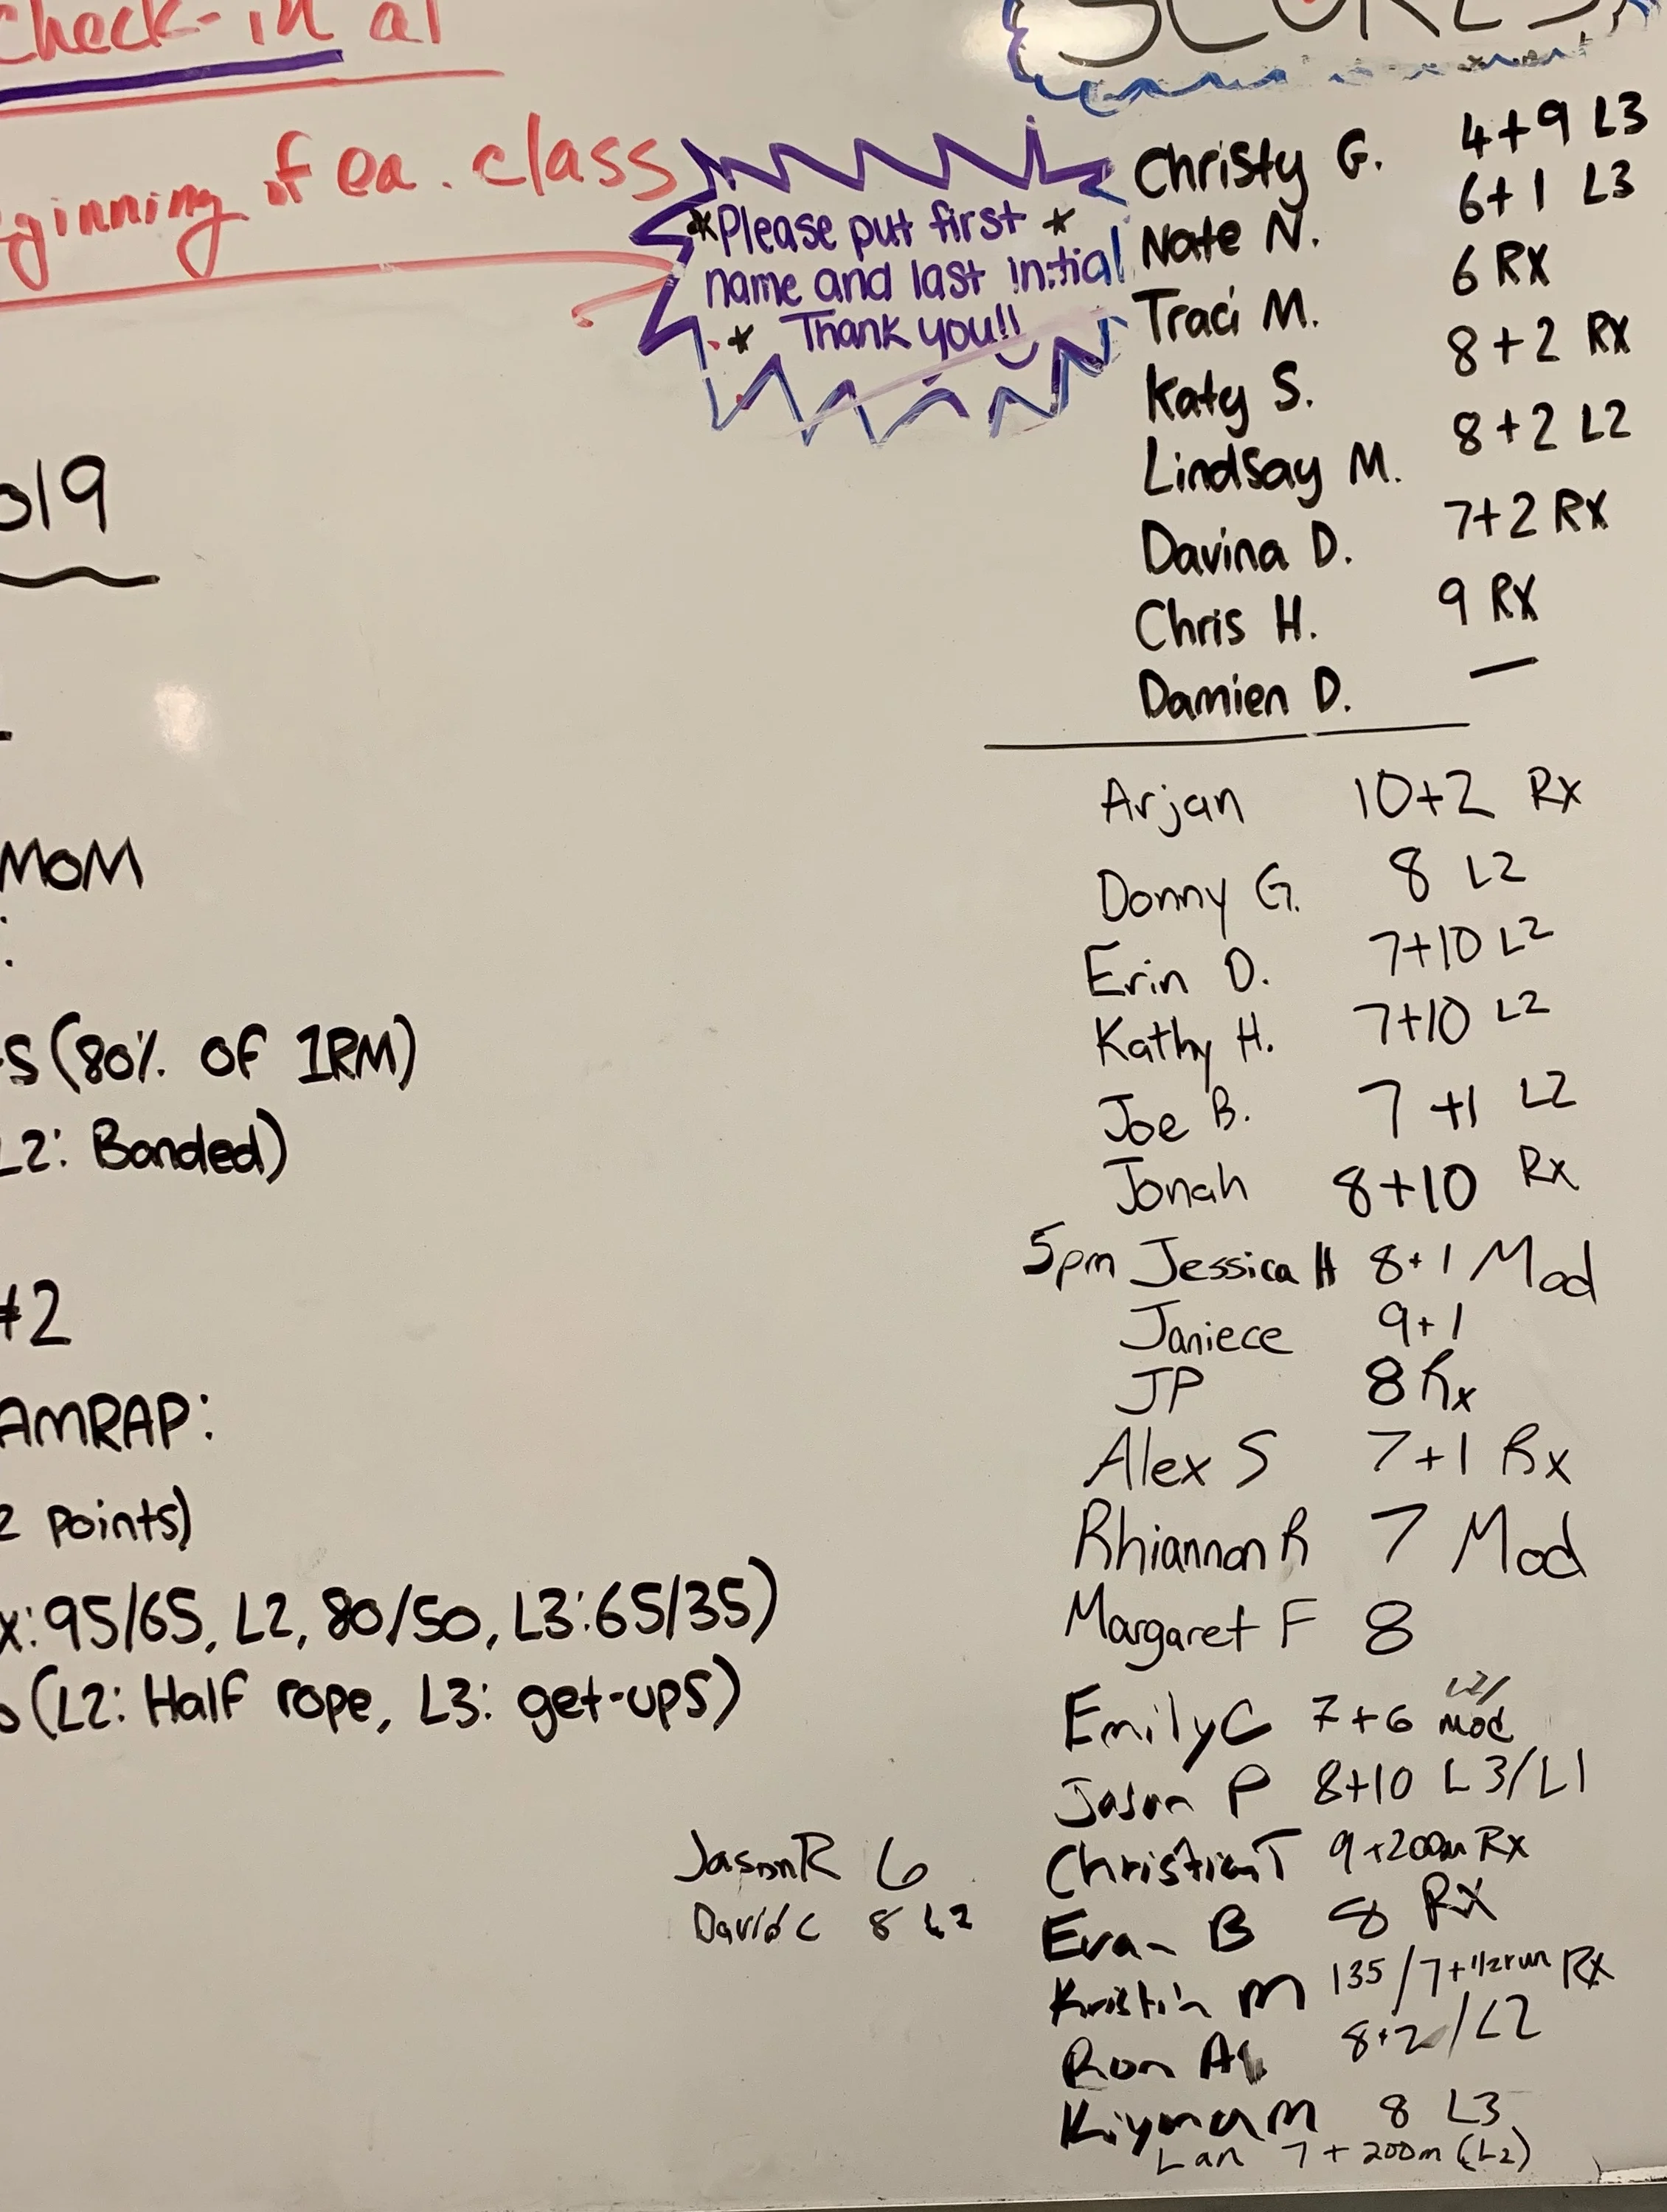 check-in at
ginning of ea. class
SCORES
*Please put first *
name and last initial
* Thank you!!
Christy G. 4+9 L3
Nate N. 6+1 L3
Traci M. 6 RX
Katy S. 8+2 RX
Lindsay M. 8+2 L2
Davina D. 7+2 RX
Chris H. 9 RX
Damien D. —
019
MOM
:
S (80% OF 1RM)
L2: Banded)
#2
AMRAP:
2 points)
x: 95/65, L2, 80/50, L3:65/35)
(L2: Half rope, L3: get-ups)
Arjan 10+2 Rx
Donny G. 8 L2
Erin D. 7+10 L2
Kathy H. 7+10 L2
Joe B. 7 +1 L2
Jonah 8+10 Rx
5pm Jessica H 8+1 Mod
Janiece 9+1
JP 8 Rx
Alex S 7+1 Rx
Rhiannon R 7 Mod
Margaret F 8
Emily C 7+6 L2/ Mod
Jason P 8+10 L3/L1
Christian T 9+200m Rx
Evan B 8 RX
Kristin M 135/7+1/2run Rx
Ron A 8+2/L2
Kiyma M 8 L3
Lan 7+200m (L2)
Jason R 6
David C 8 L2